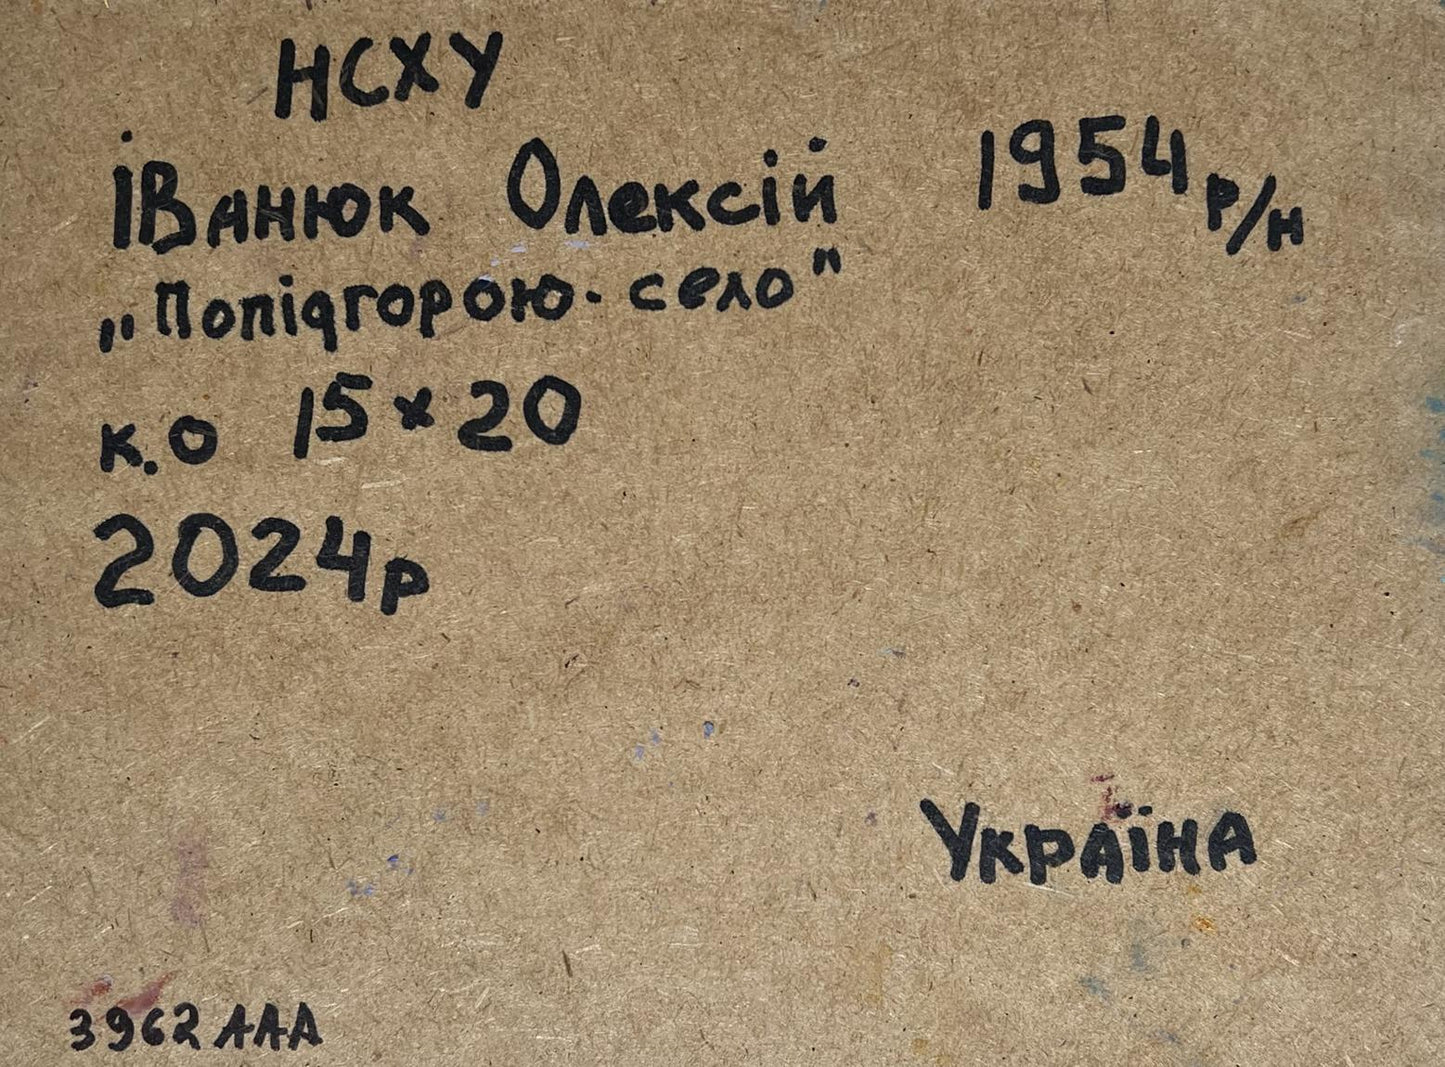 НСХУ
Іванюк Олексій 1954 р/н
„Попідгорою-село"
к.о 15×20
2024р
Україна
3962 ААА